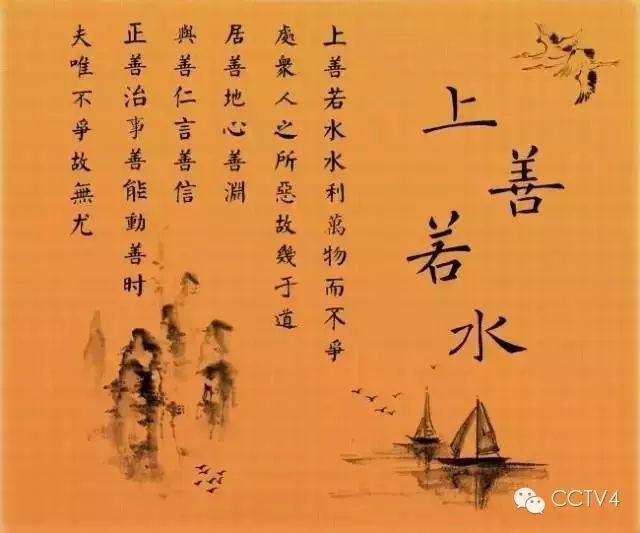 上善若水
上善若水水利萬物而不爭
處衆人之所惡故幾于道
居善地心善淵
與善仁言善信
正善治事善能動善时
夫唯不爭故無尤
CCTV4